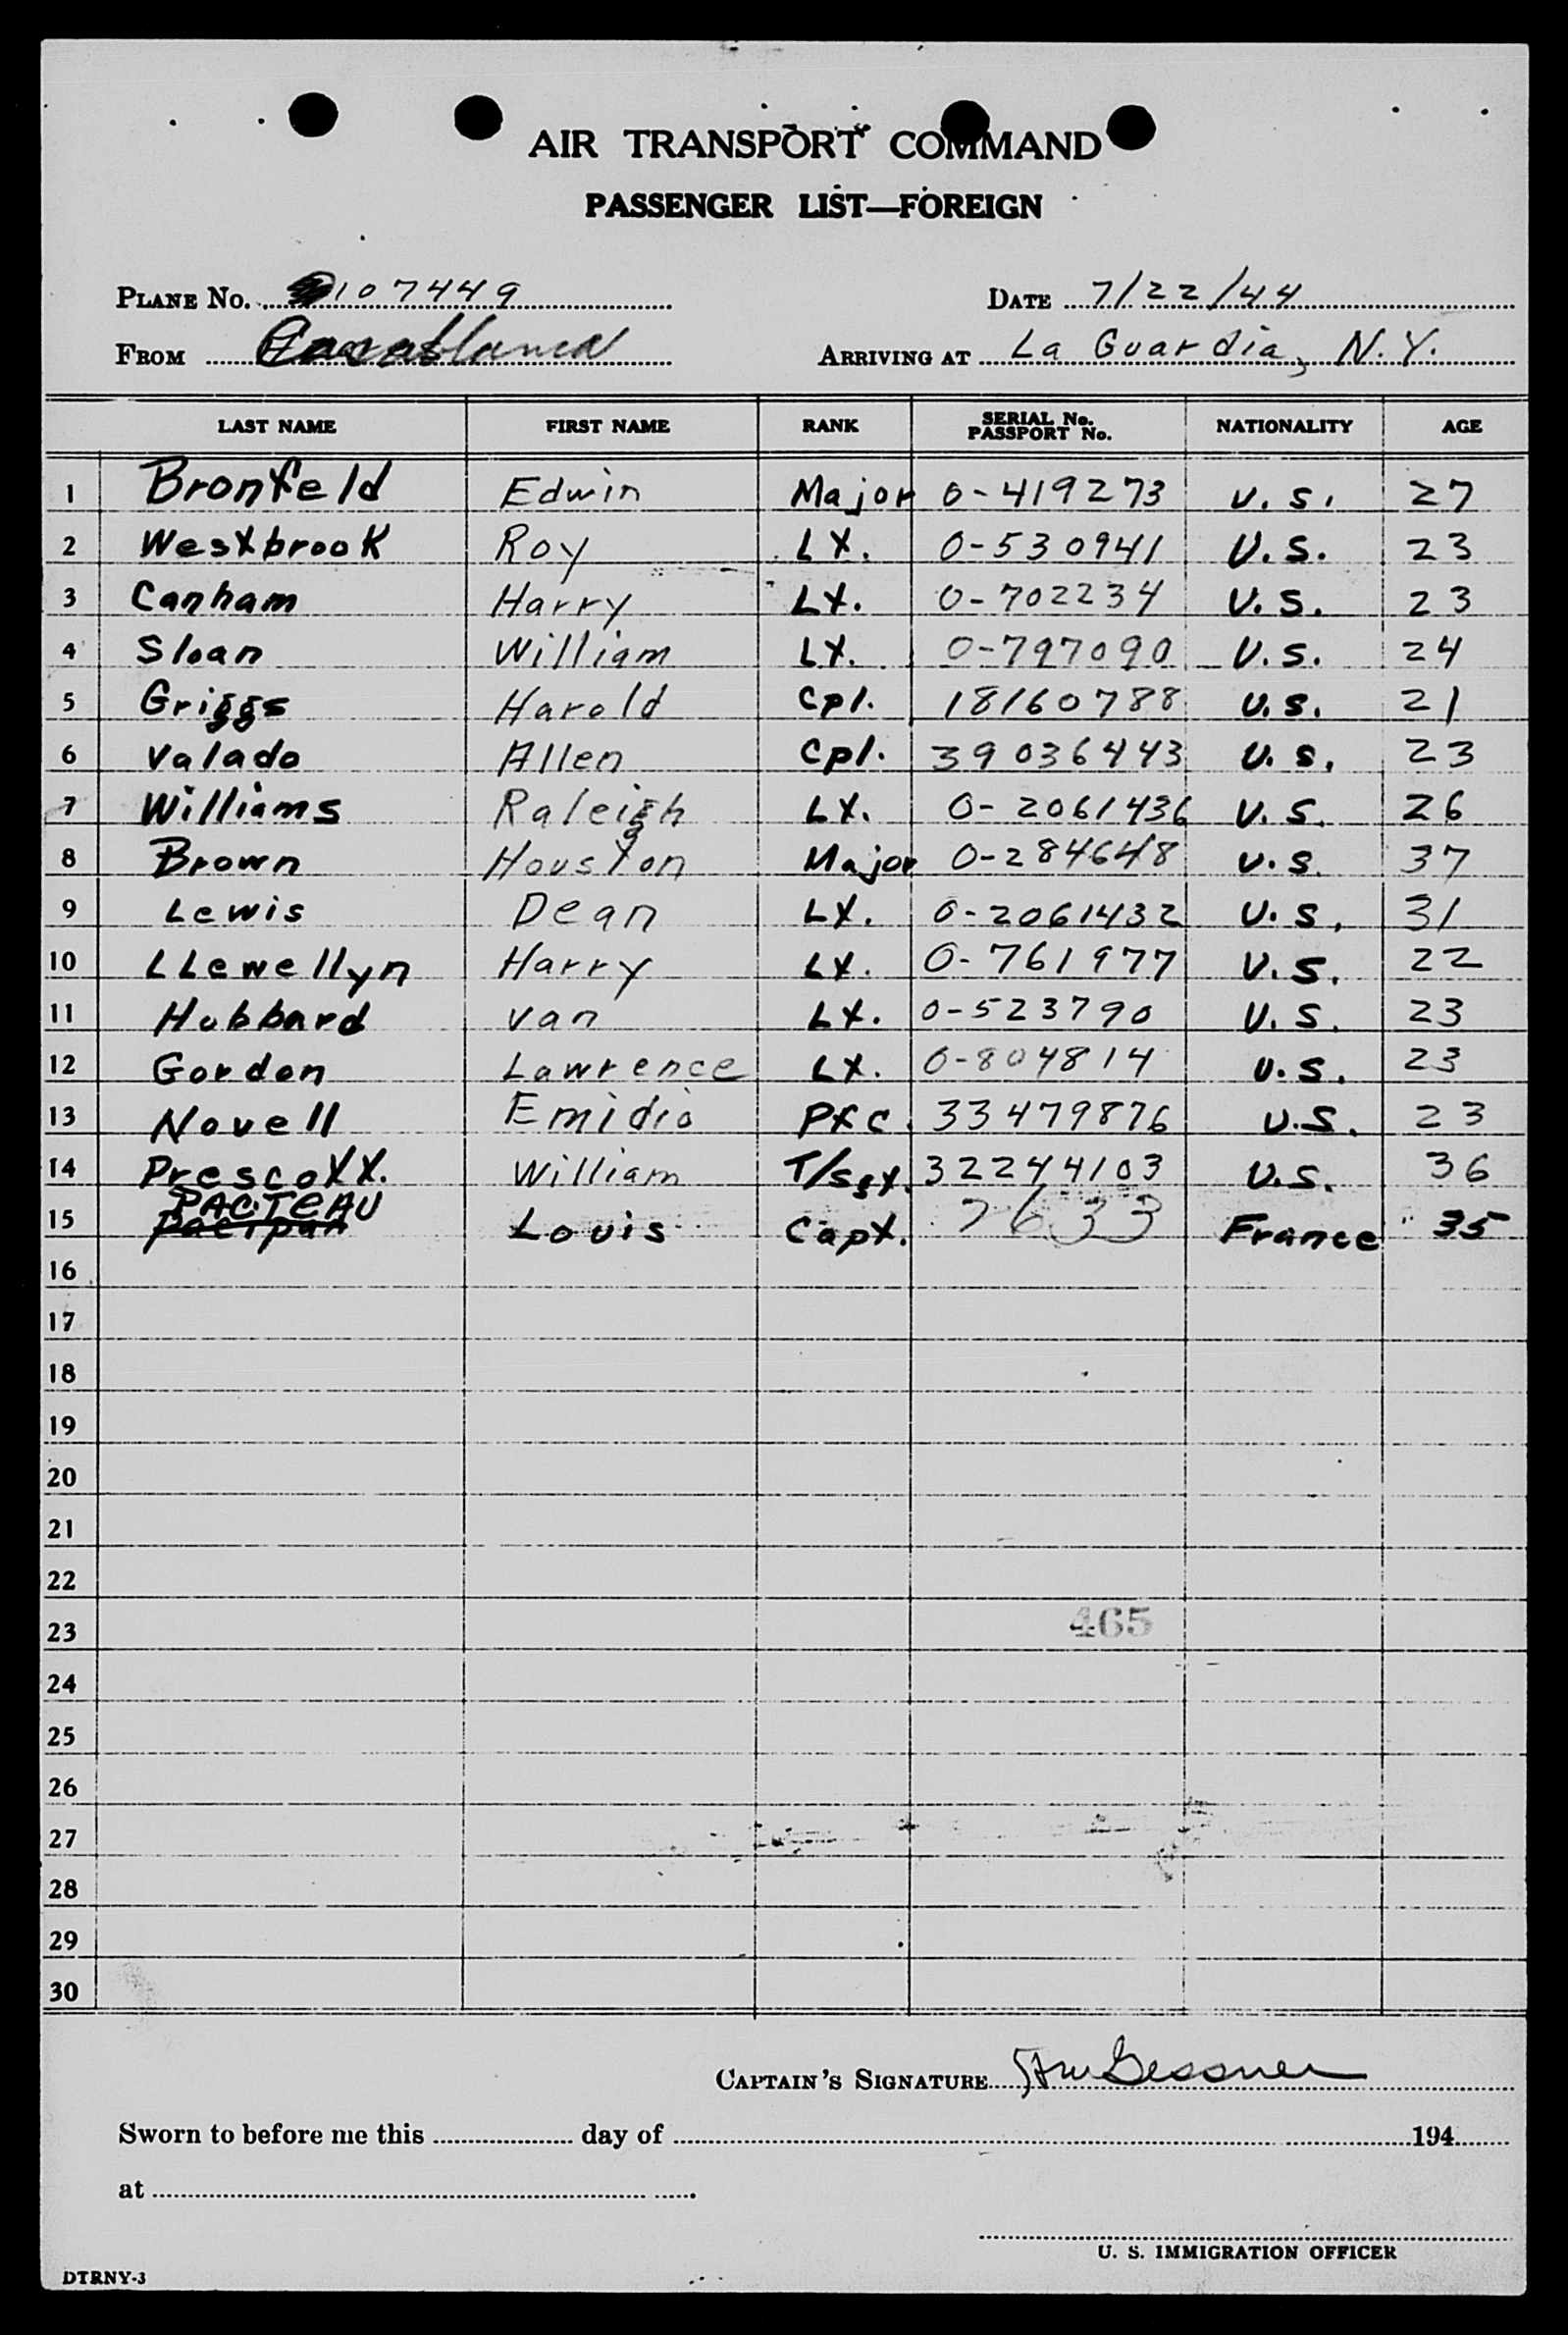 AIR TRANSPORT COMMAND
PASSENGER LIST—FOREIGN
PLANE No. 107449 DATE 7/22/44
FROM Casablanca ARRIVING AT La Guardia, N.Y.
LAST NAME FIRST NAME RANK SERIAL No. PASSPORT No. NATIONALITY AGE
1 Bronfeld Edwin Major O-419273 U.S. 27
2 Westbrook Roy Lt. O-530941 U.S. 23
3 Canham Harry Lt. O-702234 U.S. 23
4 Sloan William Lt. O-797090 U.S. 24
5 Griggs Harold Cpl. 18160788 U.S. 21
6 Valado Allen Cpl. 39036443 U.S. 23
7 Williams Raleigh Lt. O-2061436 U.S. 26
8 Brown Houston Major O-284648 U.S. 37
9 Lewis Dean Lt. O-2061432 U.S. 31
10 LLewellyn Harry Lt. O-761977 U.S. 22
11 Hubbard Van Lt. O-523790 U.S. 23
12 Gordon Lawrence Lt. O-804814 U.S. 23
13 Novell Emidio Pfc. 33479876 U.S. 23
14 Prescott. William T/Sgt. 32244103 U.S. 36
PACTEAU
15 Louis Capt. 7633 France 35
16
17
18
19
20
21
22
23 465
24
25
26
27
28
29
30
CAPTAIN'S SIGNATURE Gessner
Sworn to before me this day of 194
at
U. S. IMMIGRATION OFFICER
DTRNY-3